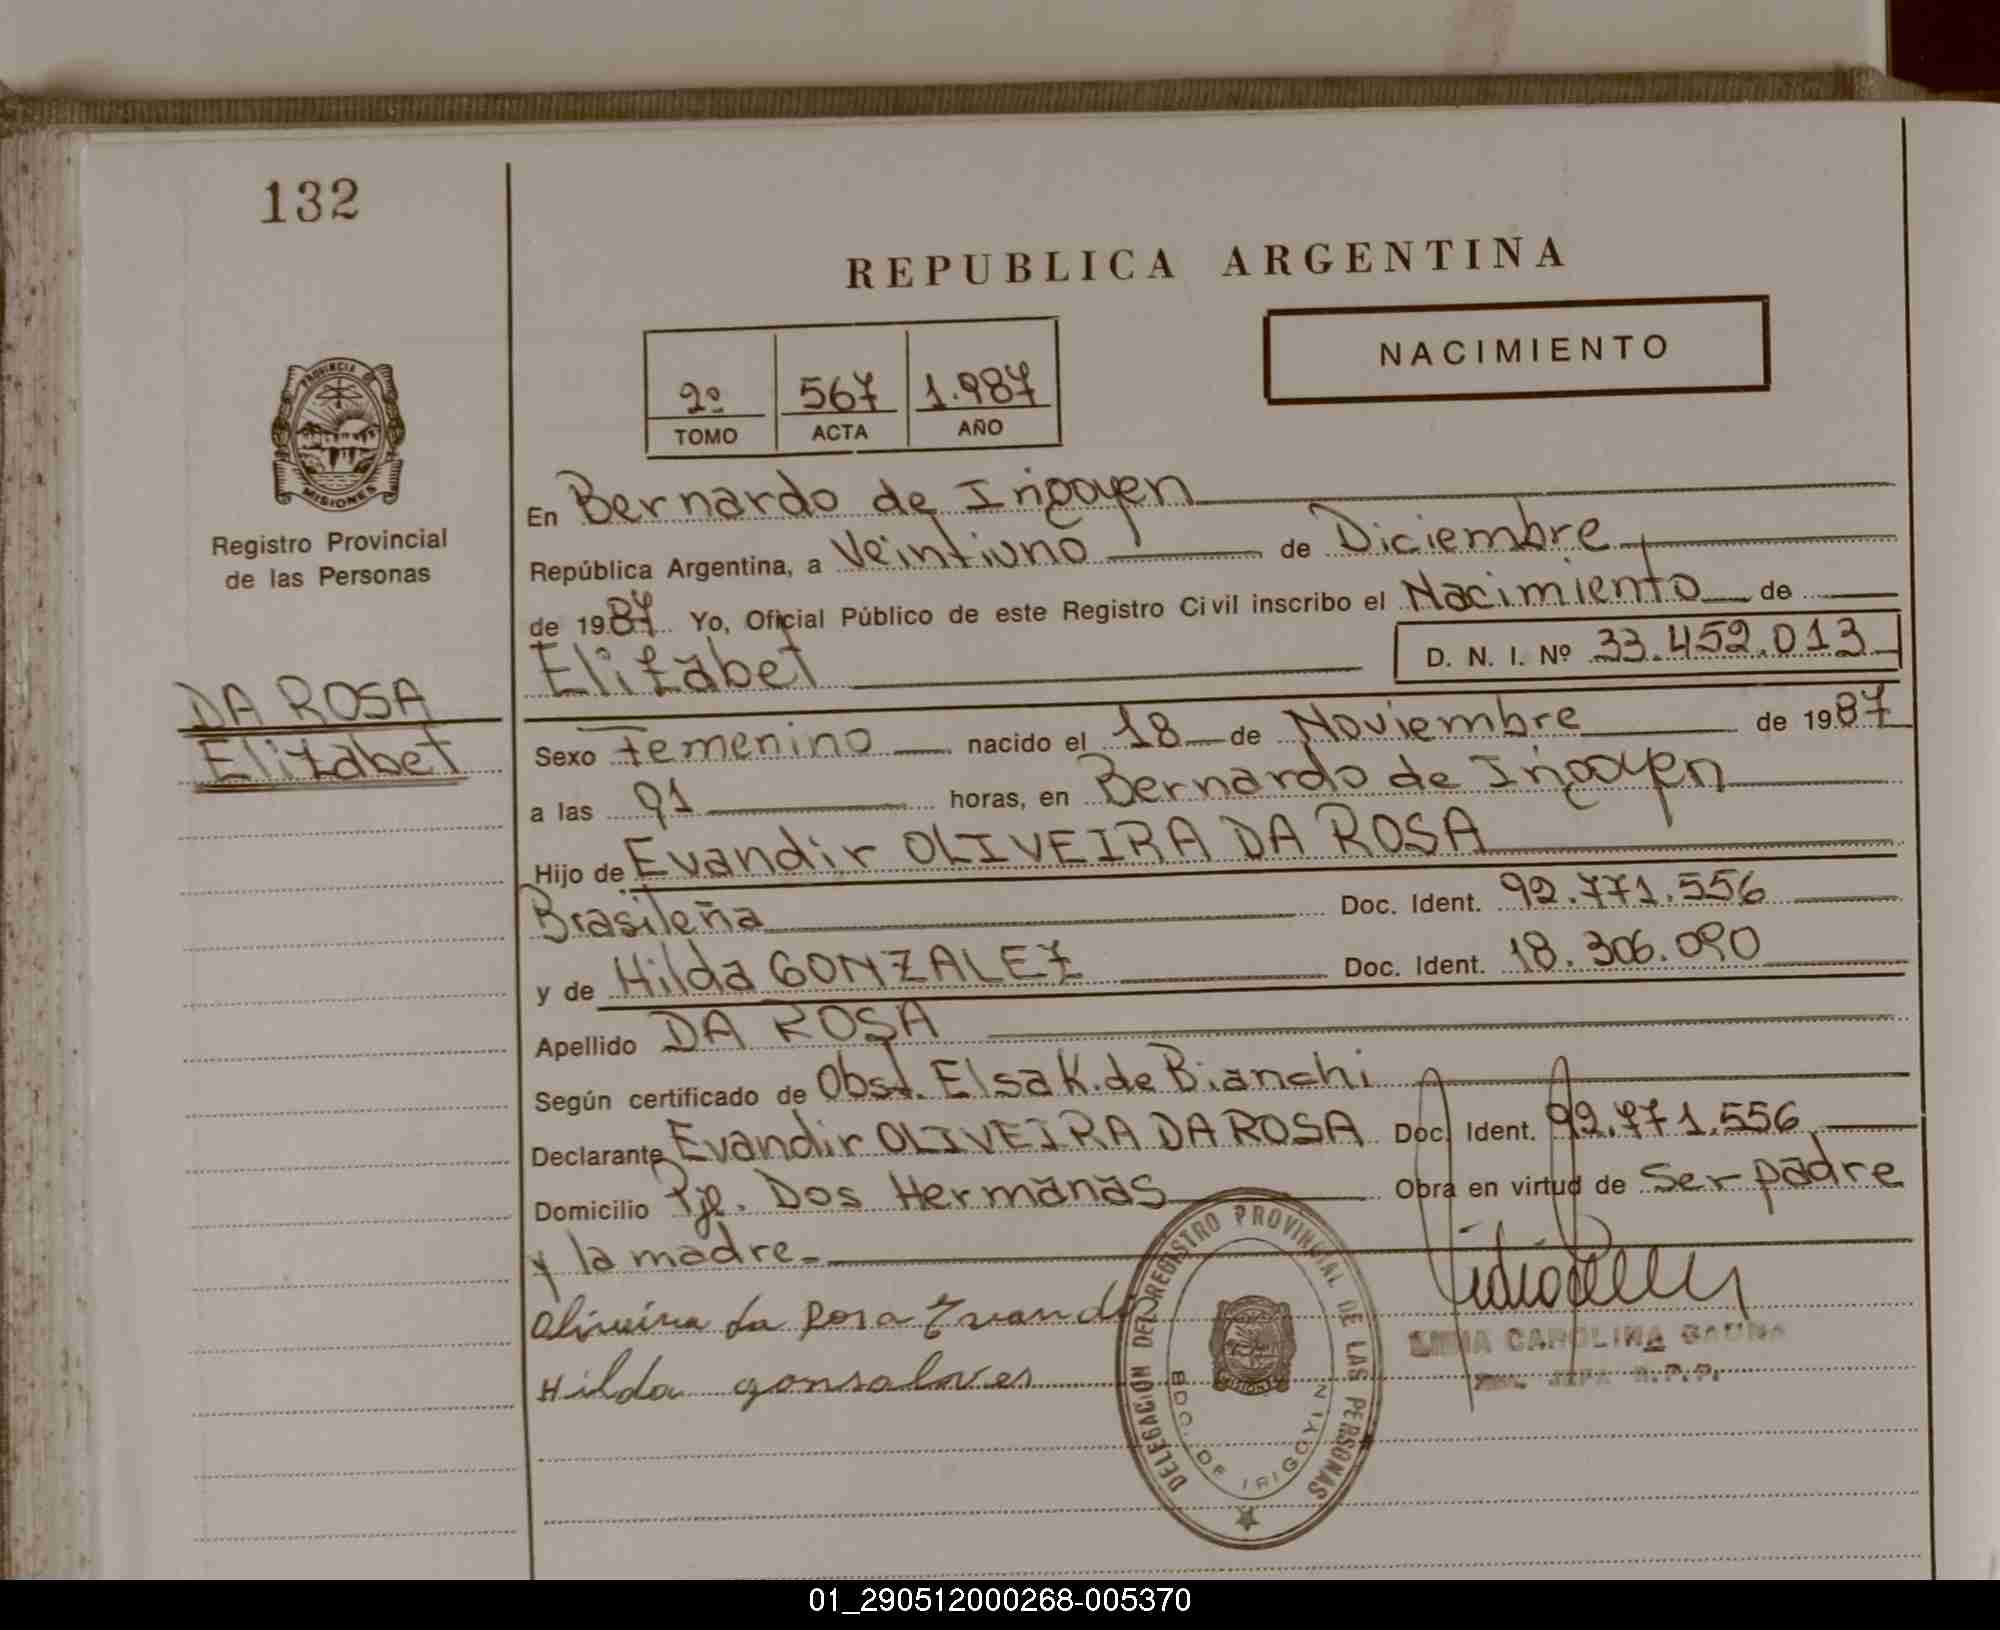 132
REPUBLICA ARGENTINA
NACIMIENTO
2º 567 1.987
TOMO ACTA AÑO
PROVINCIA DE MISIONES
Registro Provincial
de las Personas
DA ROSA
Elizabet
En Bernardo de Irigoyen
República Argentina, a Veintiuno de Diciembre
de 1987 Yo, Oficial Público de este Registro Civil inscribo el Nacimiento de
Elizabet D. N. I. Nº 33.452.013
Sexo Femenino nacido el 18 de Noviembre de 1987
a las 91 horas, en Bernardo de Irigoyen
Hijo de Evandir OLIVEIRA DA ROSA
Brasileña Doc. Ident. 92.771.556
y de Hilda GONZALEZ Doc. Ident. 18.306.090
Apellido DA ROSA
Según certificado de Obst. Elsa K. de Bianchi
Declarante Evandir OLIVEIRA DA ROSA Doc. Ident. 92.771.556
Domicilio Pje. Dos Hermanas Obra en virtud de Ser padre
y la madre.
Oliveira da Rosa Evandir
Hilda gonsalves
DELEGACIÓN DEL REGISTRO PROVINCIAL DE LAS PERSONAS
BDO. DE IRIGOYEN
CAROLINA
JEFA R.P.P.
01_290512000268-005370